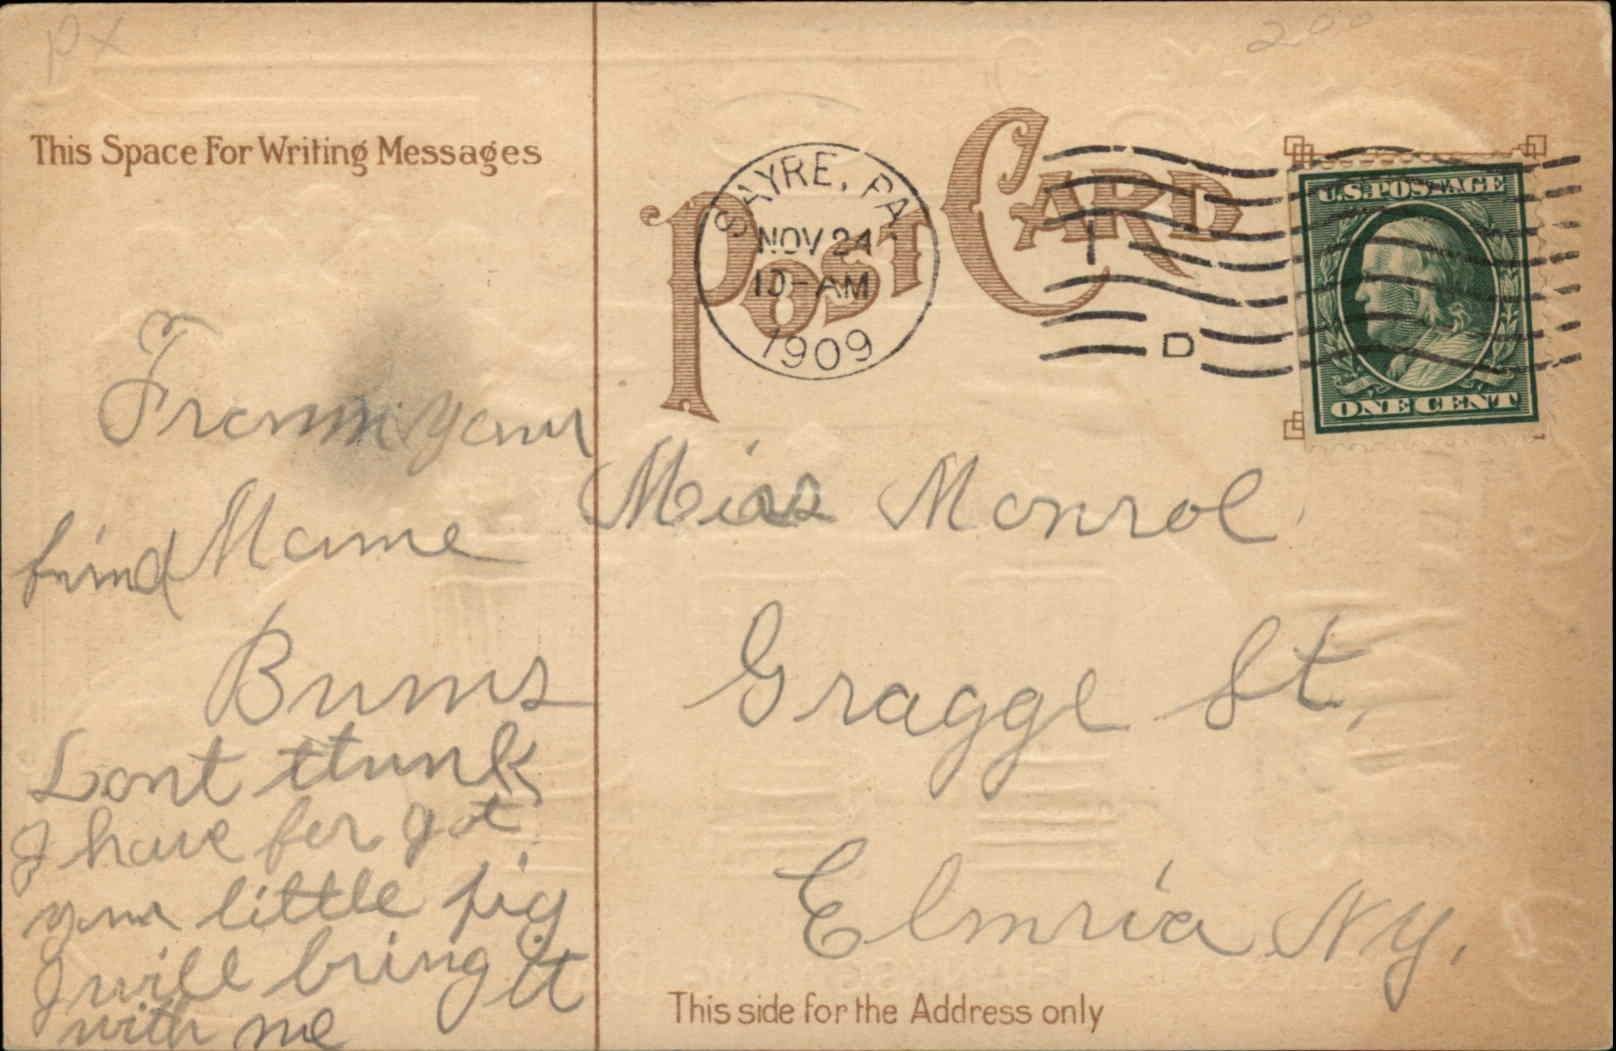 PX
200
This Space For Writing Messages
POST CARD
SAYRE, PA
NOV 24
10-AM
1909
D
U.S. POSTAGE
ONE CENT
From your
frind Mame
Burns
Dont thunk
I have for got
your little pig
I will bring it
with me
Miss Monroe
Gragge St,
Elmria NY,
This side for the Address only